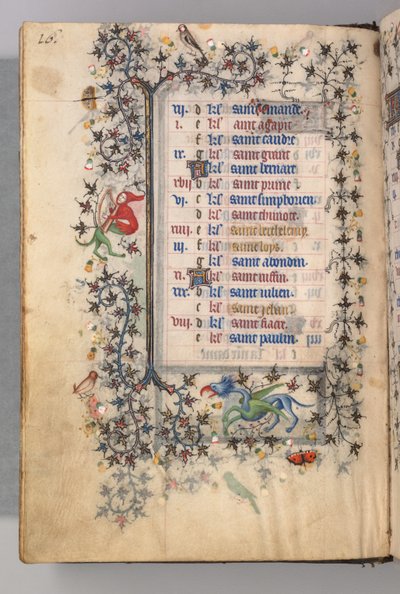 16.
xij. d kl' saint emance.
i. e kl' saint agapit
f kl' saint candre
ix. g kl' saint giniit
kl' saint bernart
xvii b kl' saint prime
vi. c kl' saint simphorien
d kl' saint thimote.
xiiii e kl' saint berthelemy.
iii. f kl' saint loys.
g kl' saint abondin
xi. kl' saint ruffin.
xix. b kl' saint iulien.
c kl' saint iehan
viii. d kl' saint fiacre.
e kl' saint paulin.